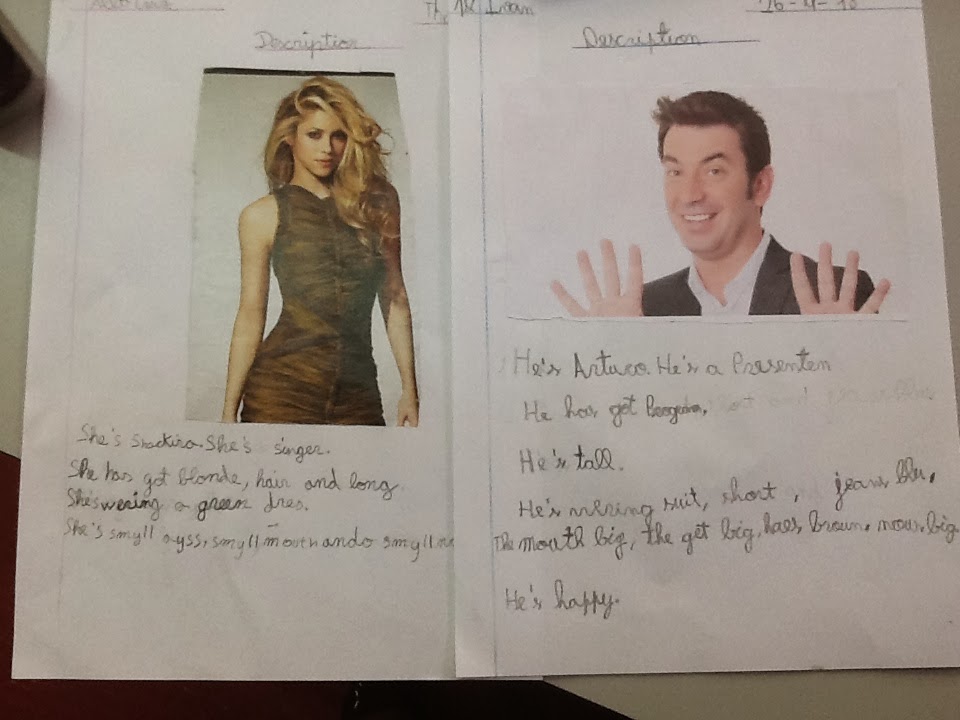 The 1st Ivan
Description
She's Shackira. She's singer.
She has got blonde, hair and long.
She's wering a green dres.
She's smyll ayss, smyll mouth ando smyll
26-4-
Description
He's Arturo. He's a Presenten
He has got
He's tall.
He's wering suit, short, jeans blu,
The mouth big, the get big, haer broun, nous big.
He's happy.